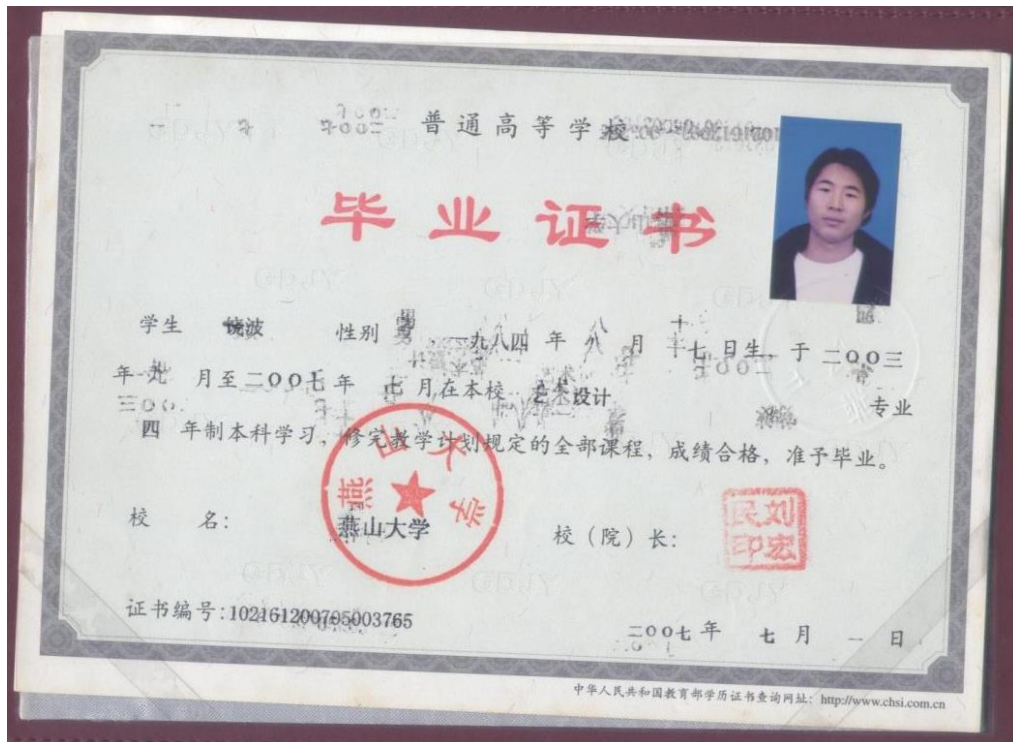 普通高等学校
毕业证书
学生 饶波 性别 男 一九八四年 八 月 十七日生，于二〇〇三
年 九 月至二〇〇七年 七 月在本校 艺术设计 专业
四 年制本科学习，修完教学计划规定的全部课程，成绩合格，准予毕业。
燕山大学
校 名： 燕山大学 校（院）长： 刘宏民印
证书编号:102161200705003765
二〇〇七年 七 月 一 日
中华人民共和国教育部学历证书查询网址：http://www.chsi.com.cn